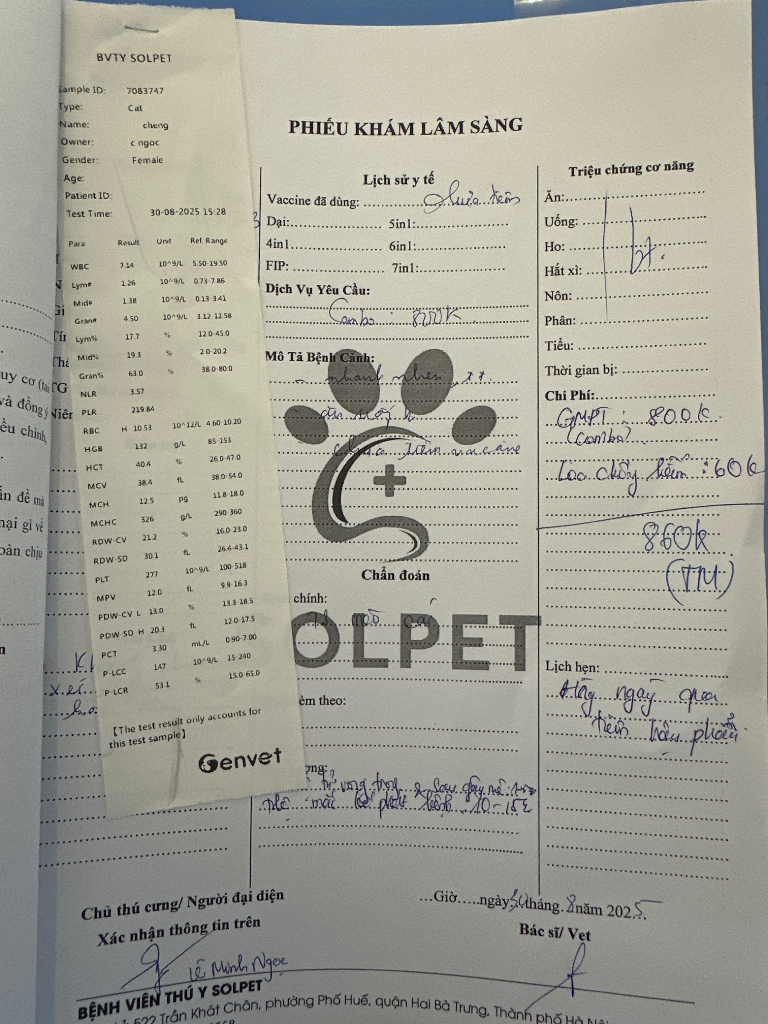 BVTY SOLPET
Sample ID: 7083747
Type: Cat
Name: cheng
Owner: c ngoc
Gender: Female
Age:
Patient ID:
Test Time: 30-08-2025 15:28
Para Result Unit Ref. Range
WBC 7.14 10^9/L 5.50-19.50
Lym# 1.26 10^9/L 0.73-7.86
Mid# 1.38 10^9/L 0.13-3.41
Gran# 4.50 10^9/L 3.12-12.58
Lym% 17.7 % 12.0-45.0
Mid% 19.3 % 2.0-20.2
Gran% 63.0 % 38.0-80.0
NLR 3.57
PLR 219.84
RBC H 10.53 10^12/L 4.60-10.20
HGB 132 g/L 85-153
HCT 40.4 % 26.0-47.0
MCV 38.4 fL 38.0-54.0
MCH 12.5 pg 11.8-18.0
MCHC 326 g/L 290-360
RDW-CV 21.2 % 16.0-23.0
RDW-SD 30.1 fL 26.4-43.1
PLT 277 10^9/L 100-518
MPV 12.0 fL 9.9-16.3
PDW-CV L 13.0 % 13.3-18.5
PDW-SD H 20.3 fL 12.0-17.5
PCT 3.30 mL/L 0.90-7.00
P-LCC 147 10^9/L 15-240
P-LCR 53.1 % 15.0-65.0
【The test result only accounts for
this test sample】
Genvet
PHIẾU KHÁM LÂM SÀNG
Lịch sử y tế
Vaccine đã dùng: chưa tiêm
Dại: 5in1:
4in1 6in1:
FIP: 7in1:
Dịch Vụ Yêu Cầu:
Combo: 800K
Mô Tả Bệnh Cảnh:
- nhanh nhẹn, ++
chưa tiêm vaccine
Chẩn đoán
chính:
SOLPET
èm theo:
ợng:
tử vong trong & sau gây mê
10-15%
Triệu chứng cơ năng
Ăn:
Uống:
Ho: bt.
Hắt xì:
Nôn:
Phân:
Tiểu:
Thời gian bị:
Chi Phí:
GMPT: 800k
(combo)
Loa chống liếm: 60k
860k
(TM)
Lịch hẹn:
Hằng ngày qua
tiêm hậu phẫu
Chủ thú cưng/ Người đại diện
Xác nhận thông tin trên
Lê Minh Ngọc
...Giờ.....ngày 30 tháng 8 năm 2025
Bác sĩ/ Vet
BỆNH VIỆN THÚ Y SOLPET
522 Trần Khát Chân, phường Phố Huế, quận Hai Bà Trưng, Thành phố Hà Nội